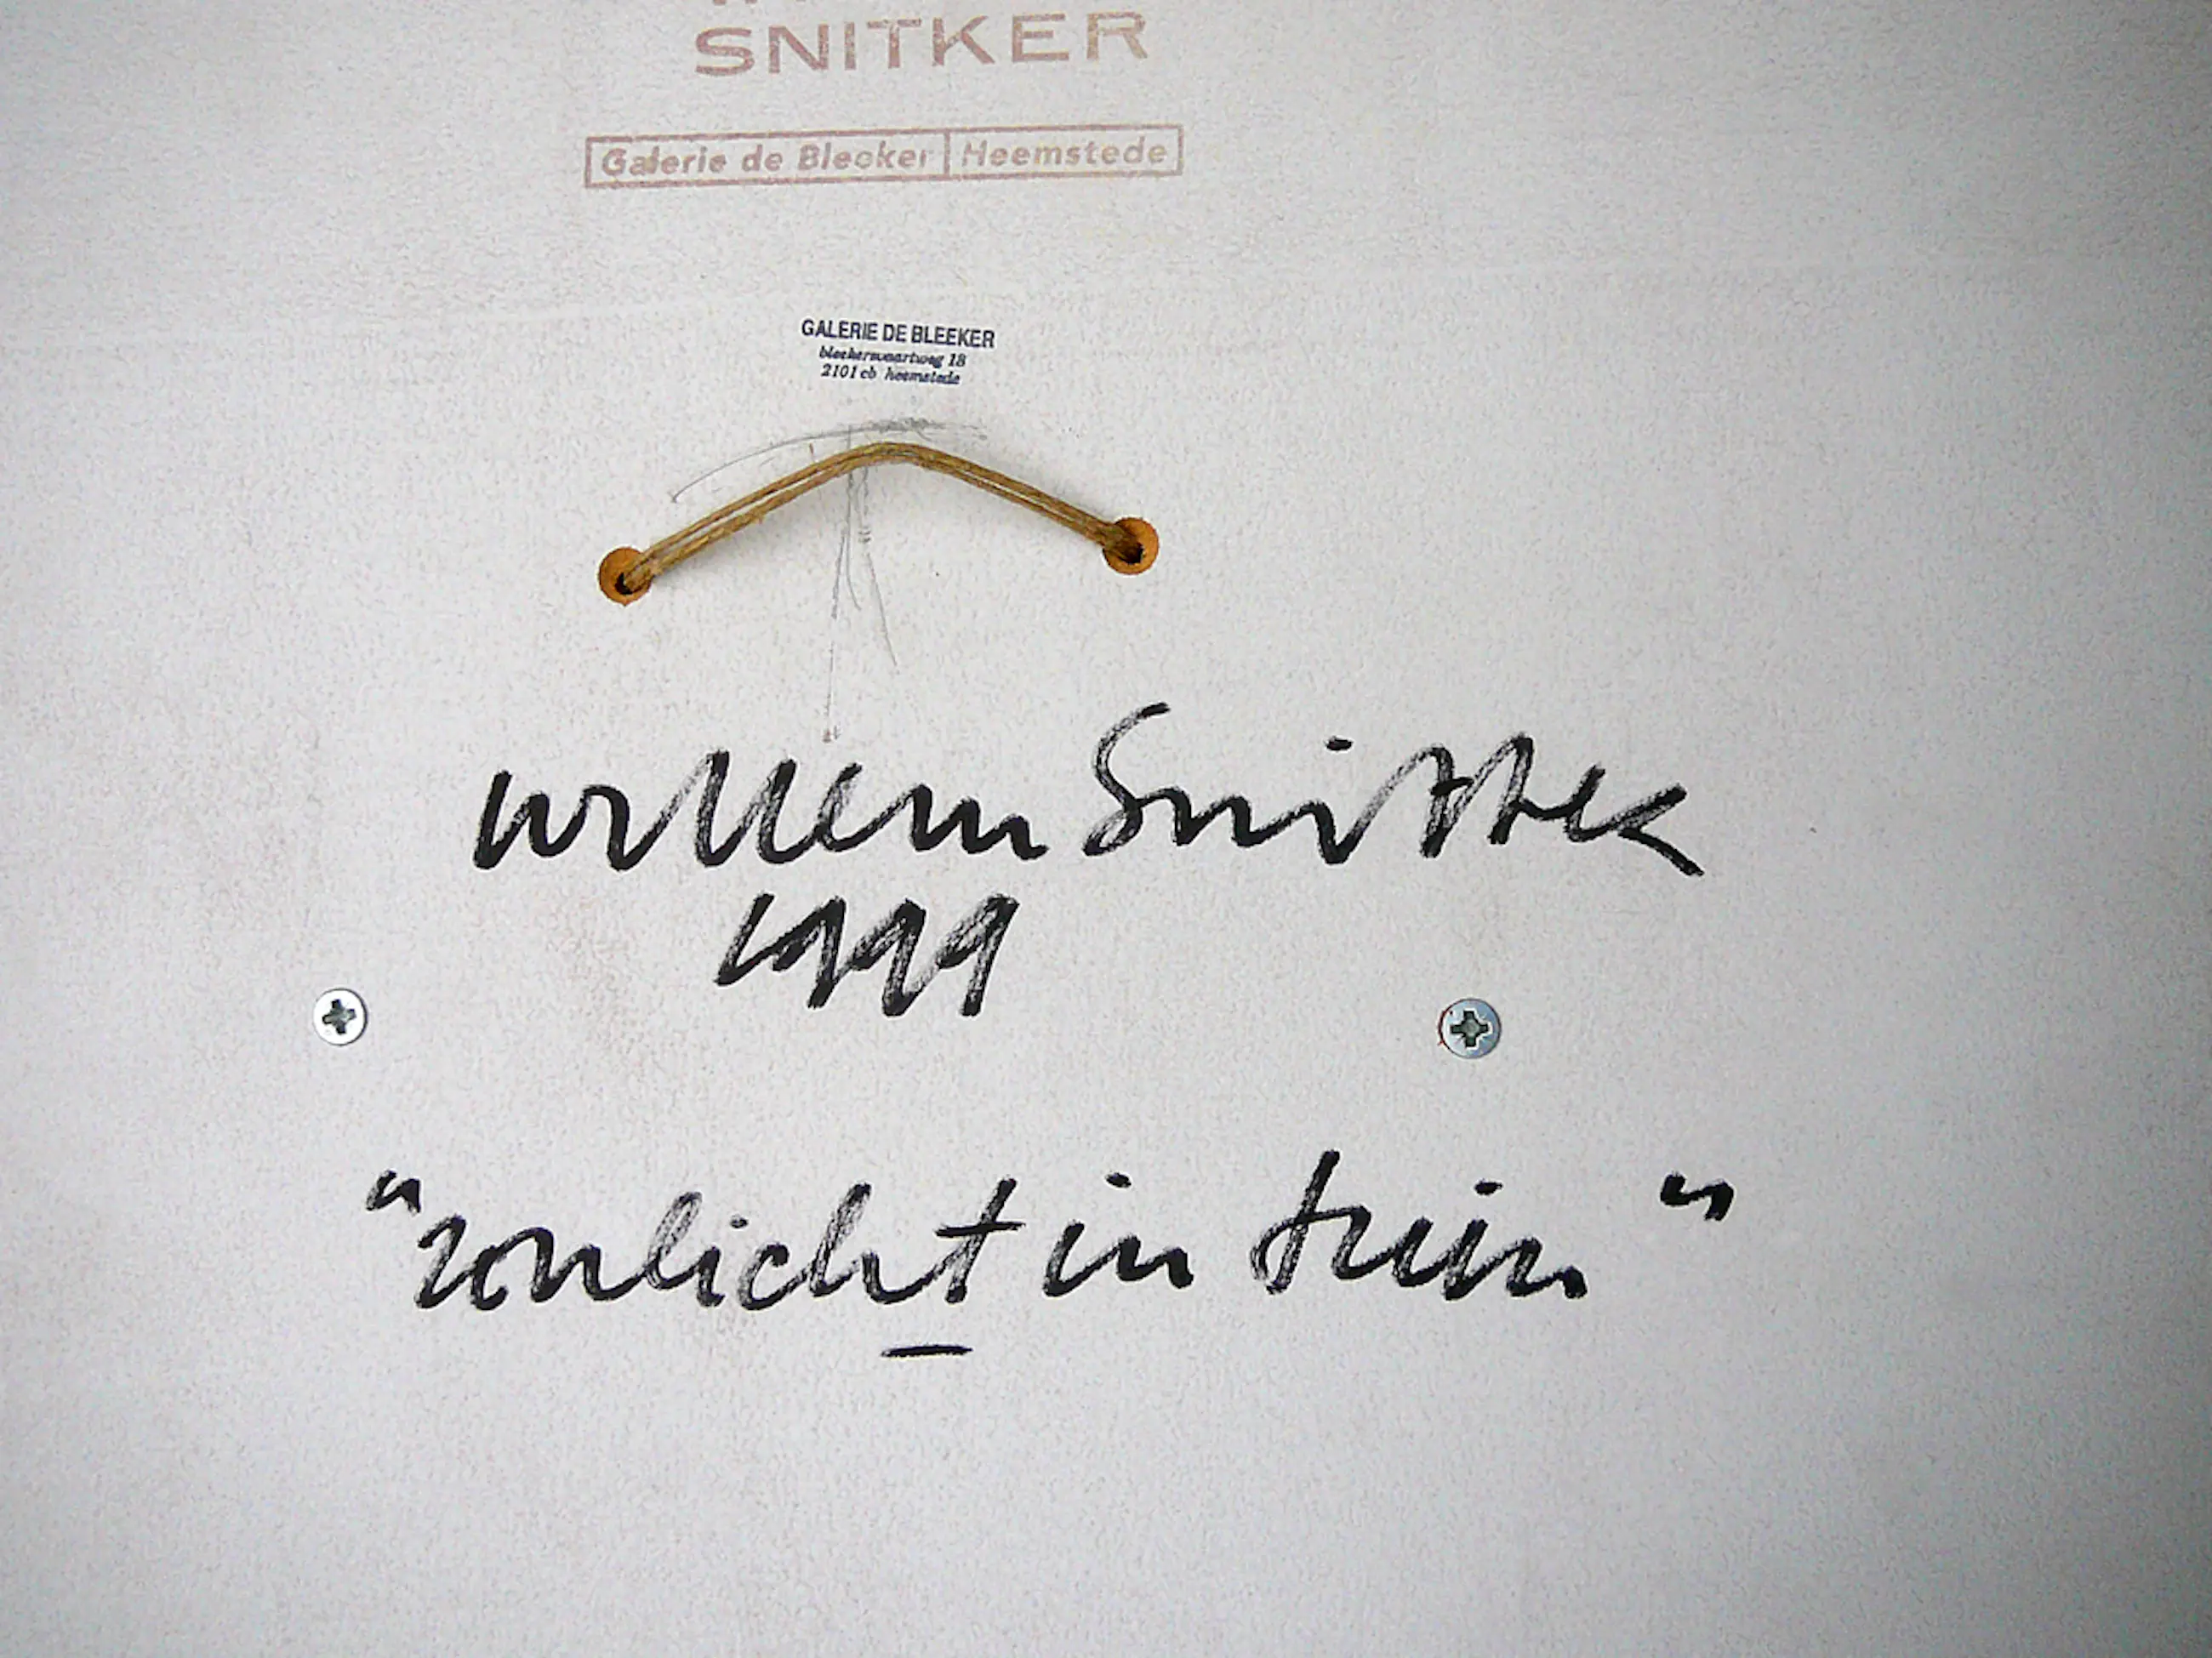 SNITKER
Galerie de Bleeker Heemstede
GALERIE DE BLEEKER
bleekersvaartweg 18
2101 cb heemstede
willem Snitker
1999
"zonlicht in tuin"